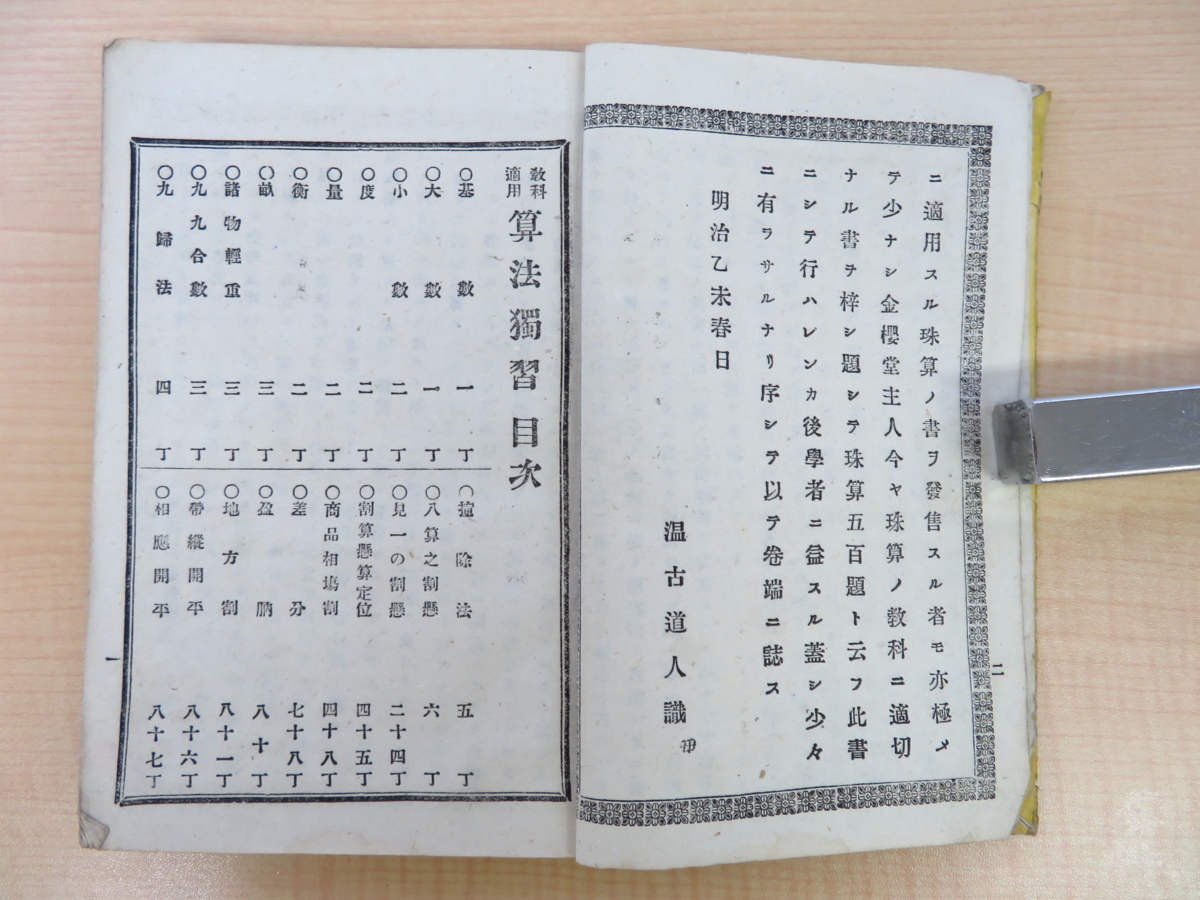 ニ適用スル珠算ノ書ヲ發售スル者モ亦極メ
テ少ナシ金櫻堂主人今ヤ珠算ノ敎科ニ適切
ナル書ヲ梓シ題シテ珠算五百題ト云フ此書
ニシテ行ハレンカ後學者ニ益スル蓋シ少々
ニ有ラサルナリ序シテ以テ卷端ニ誌ス
明治乙未春日
温古道人識 印
二
敎科適用 算法獨習目次
〇基數 一丁
〇大數 一丁
〇小數 二丁
〇度 二丁
〇量 二丁
〇衡 二丁
〇畝 三丁
〇諸物輕重 三丁
〇九九合數 三丁
〇九歸法 四丁
〇撞除法 五丁
〇八算之割懸 六丁
〇見一の割懸 二十四丁
〇割算懸算定位 四十五丁
〇商品相塲割 四十八丁
〇差分 七十八丁
〇盈朒 八十丁
〇地方割 八十一丁
〇帶縱開平 八十六丁
〇相應開平 八十七丁
一